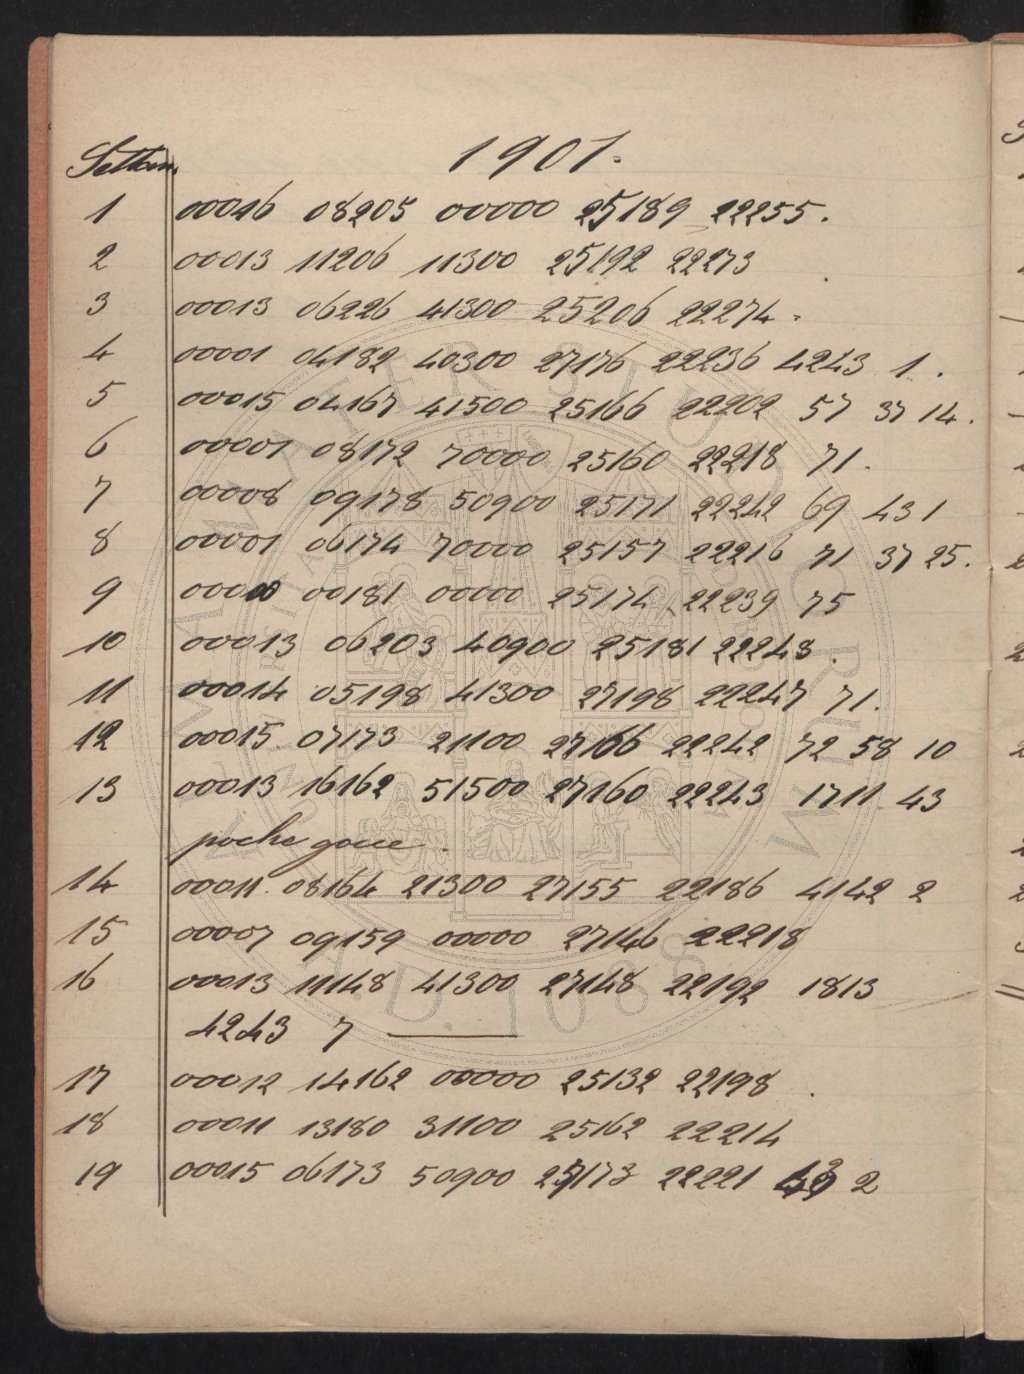 1901.
Settem.
1 00016 08205 00000 25189 22255.
2 00013 11206 11300 25192 22273
3 00013 06226 41300 25206 22274.
4 00001 04182 40300 27176 22236 4243 1.
5 00015 04167 41500 25166 22202 57 37 14.
6 00001 08172 70000 25160 22218 71.
7 00008 09178 50900 25171 22242 69 43 1
8 00001 06174 70000 25157 22216 71 37 25.
9 00000 00181 00000 25174 22239 75
10 00013 06203 40900 25181 22248.
11 00014 05198 41300 27198 22247 71.
12 00015 07173 21100 27166 22242 72 58 10
13 00013 16162 51500 27160 22243 1711 43
poche gocce.
14 00011 08164 21300 27155 22186 4142 2
15 00007 09159 00000 27146 22218
16 00013 11148 41300 27148 22192 1813
4243 7
17 00012 14162 00000 25132 22198.
18 00011 13180 31100 25162 22214
19 00015 06173 50900 25173 22221 2